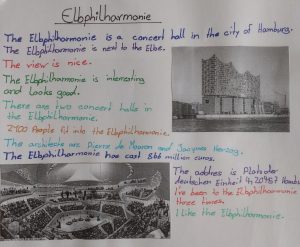 Elbphilharmonie
The Elbphilharmonie is a concert hall in the city of Hamburg.
The Elbphilharmonie is next to the Elbe.
The view is nice.
The Elbphilharmonie is interesting
and looks good.
There are two concert halls in
the Elbphilharmonie.
2100 People fit into the Elbphilharmonie.
The architects are Pierre de Meuron and Jacques Herzog.
The Elbphilharmonie has cost 866 million euros.
The address is Platz der
deutschen Einheit 4, 20457 Hamburg
I've been to the Elbphilharmonie
three times.
I like the Elbphilharmonie.